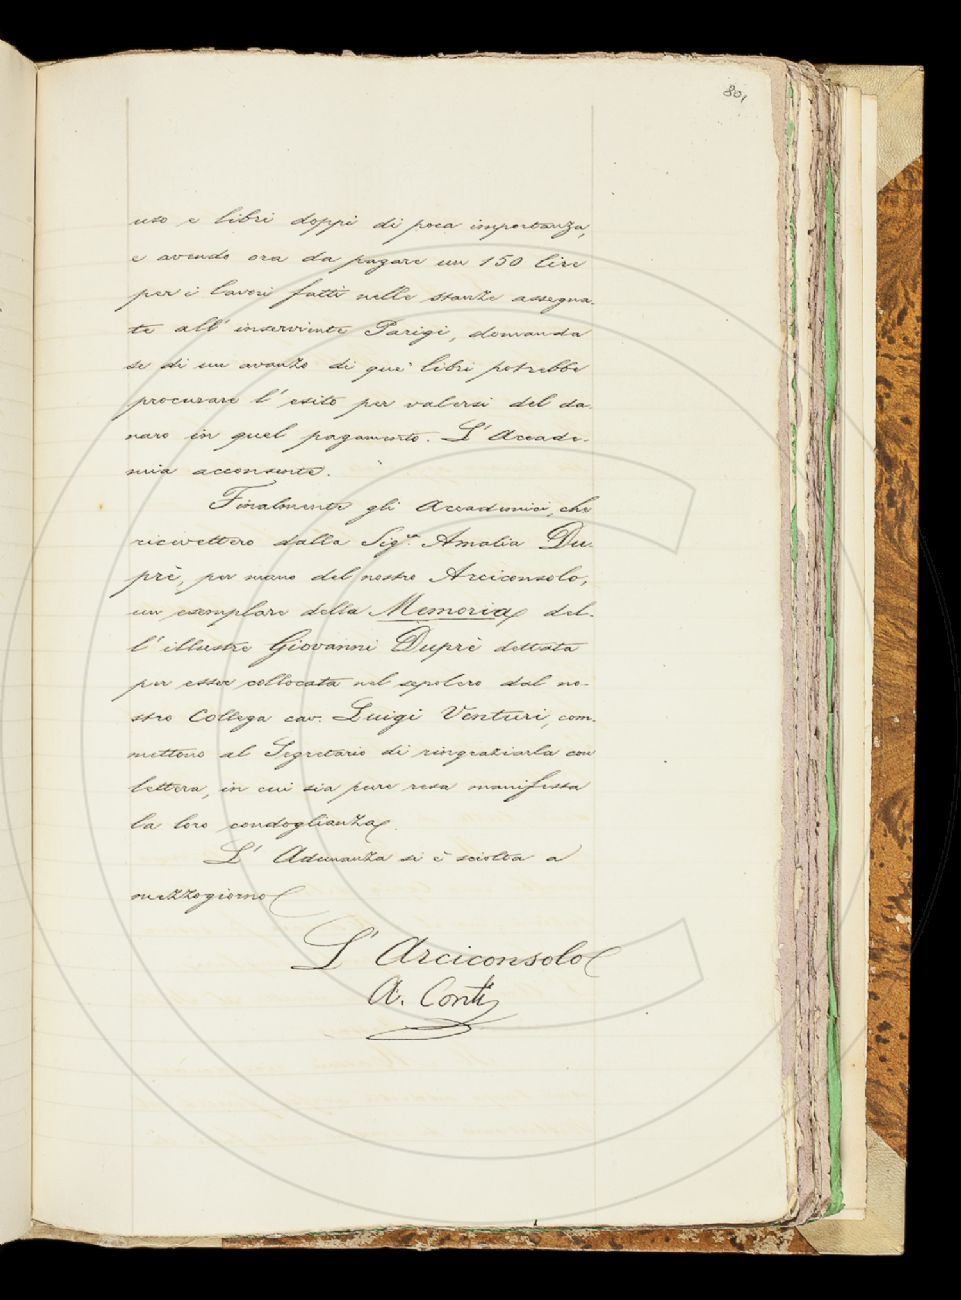 801
uso e libri doppi di poca importanza,
e avendo ora da pagare un 150 lire
per i lavori fatti nelle stanze assegna-
te all' inserviente Parigi, domanda
se di un avanzo di que' libri potrebbe
procurare l' esito per valersi del da-
naro in quel pagamento. L' Accade-
mia acconsente.
Finalmente gli Accademici, che
ricevettero dalla Sigra. Amalia Du-
prè, per mano del nostro Arciconsolo,
un esemplare della Memoria del-
l' illustre Giovanni Duprè dettata
per esser collocata nel sepolcro dal no-
stro Collega cav. Luigi Venturi, com-
mettono al Segretario di ringraziarla con
lettera, in cui sia pure resa manifesta
la loro condoglianza.
L' Adunanza si è sciolta a
mezzogiorno
L' Arciconsolo
A. Conti